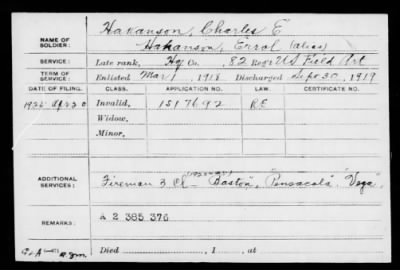 NAME OF SOLDIER: Hakanson, Charles E
Hakanson, Errol (alias)
SERVICE: Late rank, Hq Co., 82 Reg't US Field Art
TERM OF SERVICE: Enlisted Mar 1, 1918. Discharged Sept 30, 1919
DATE OF FILING. CLASS. APPLICATION NO. LAW. CERTIFICATE NO.
1925 Invalid, 1517692 R E
Widow,
Minor,
ADDITIONAL SERVICES: Fireman 3 Cl "Boston", "Pensacola", "Vega"
REMARKS: A 2 385 376
Died , 1 , at